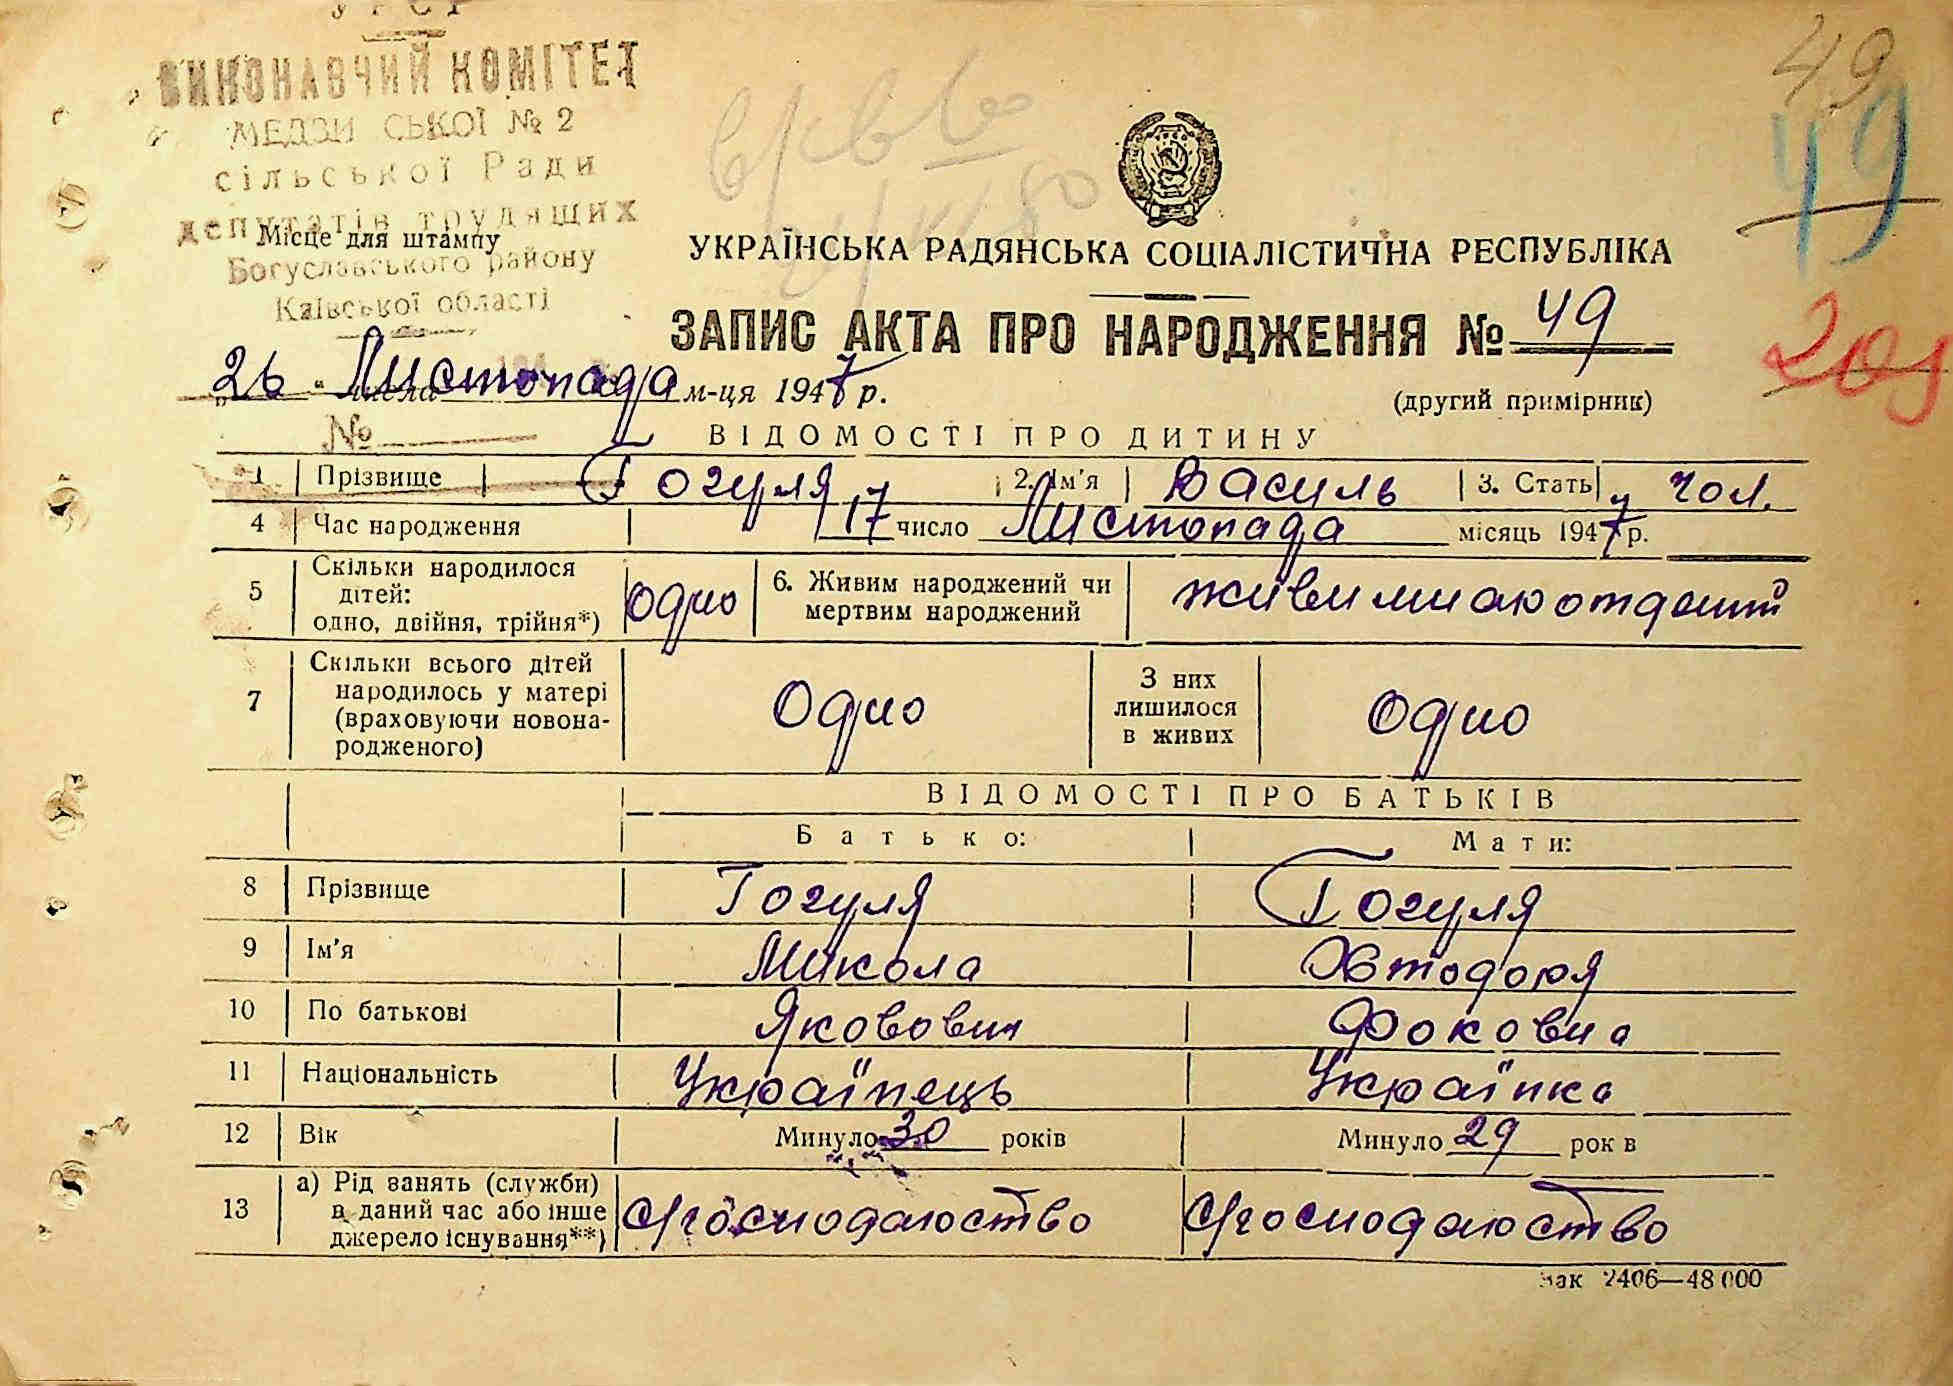 УРСР
ВИКОНАВЧИЙ КОМІТЕТ
МЕДВИ СЬКОЇ № 2
сільської Ради
депутатів трудящих
Місце для штампу
Богуславського району
Київської області
49
49
209
УКРАЇНСЬКА РАДЯНСЬКА СОЦІАЛІСТИЧНА РЕСПУБЛІКА
ЗАПИС АКТА ПРО НАРОДЖЕННЯ № 49
„26" числа Листопада м-ця 1947 р.
(другий примірник)
№
ВІДОМОСТІ ПРО ДИТИНУ
1 Прізвище Гогуля 2. Ім'я Василь 3. Стать чол.
4 Час народження 17 число Листопада місяць 1947 р.
5 Скільки народилося дітей: одно, двійня, трійня*) одно 6. Живим народжений чи мертвим народжений
7 Скільки всього дітей народилось у матері (враховуючи новонародженого) Одно З них лишилося в живих Одно
ВІДОМОСТІ ПРО БАТЬКІВ
Батько: Мати:
8 Прізвище Гогуля Гогуля
9 Ім'я Микола
10 По батькові Якович Фоковна
11 Національність Українець Українка
12 Вік Минуло 30 років Минуло 29 рок в
13 а) Рід занять (служби) в даний час або інше джерело існування**)
Зак 2406—48 000